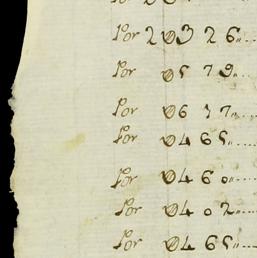 Por 2Ø326„....
Por Ø579„...
Por Ø637„...
Por Ø465„.....
Por Ø460„.....
Por Ø402„....
Por Ø465„....